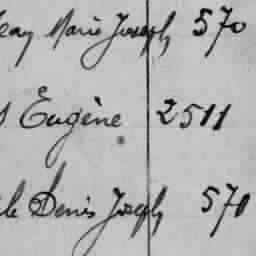 Jean Marie Joseph 570
Eugène 2511
Denis Joseph 570